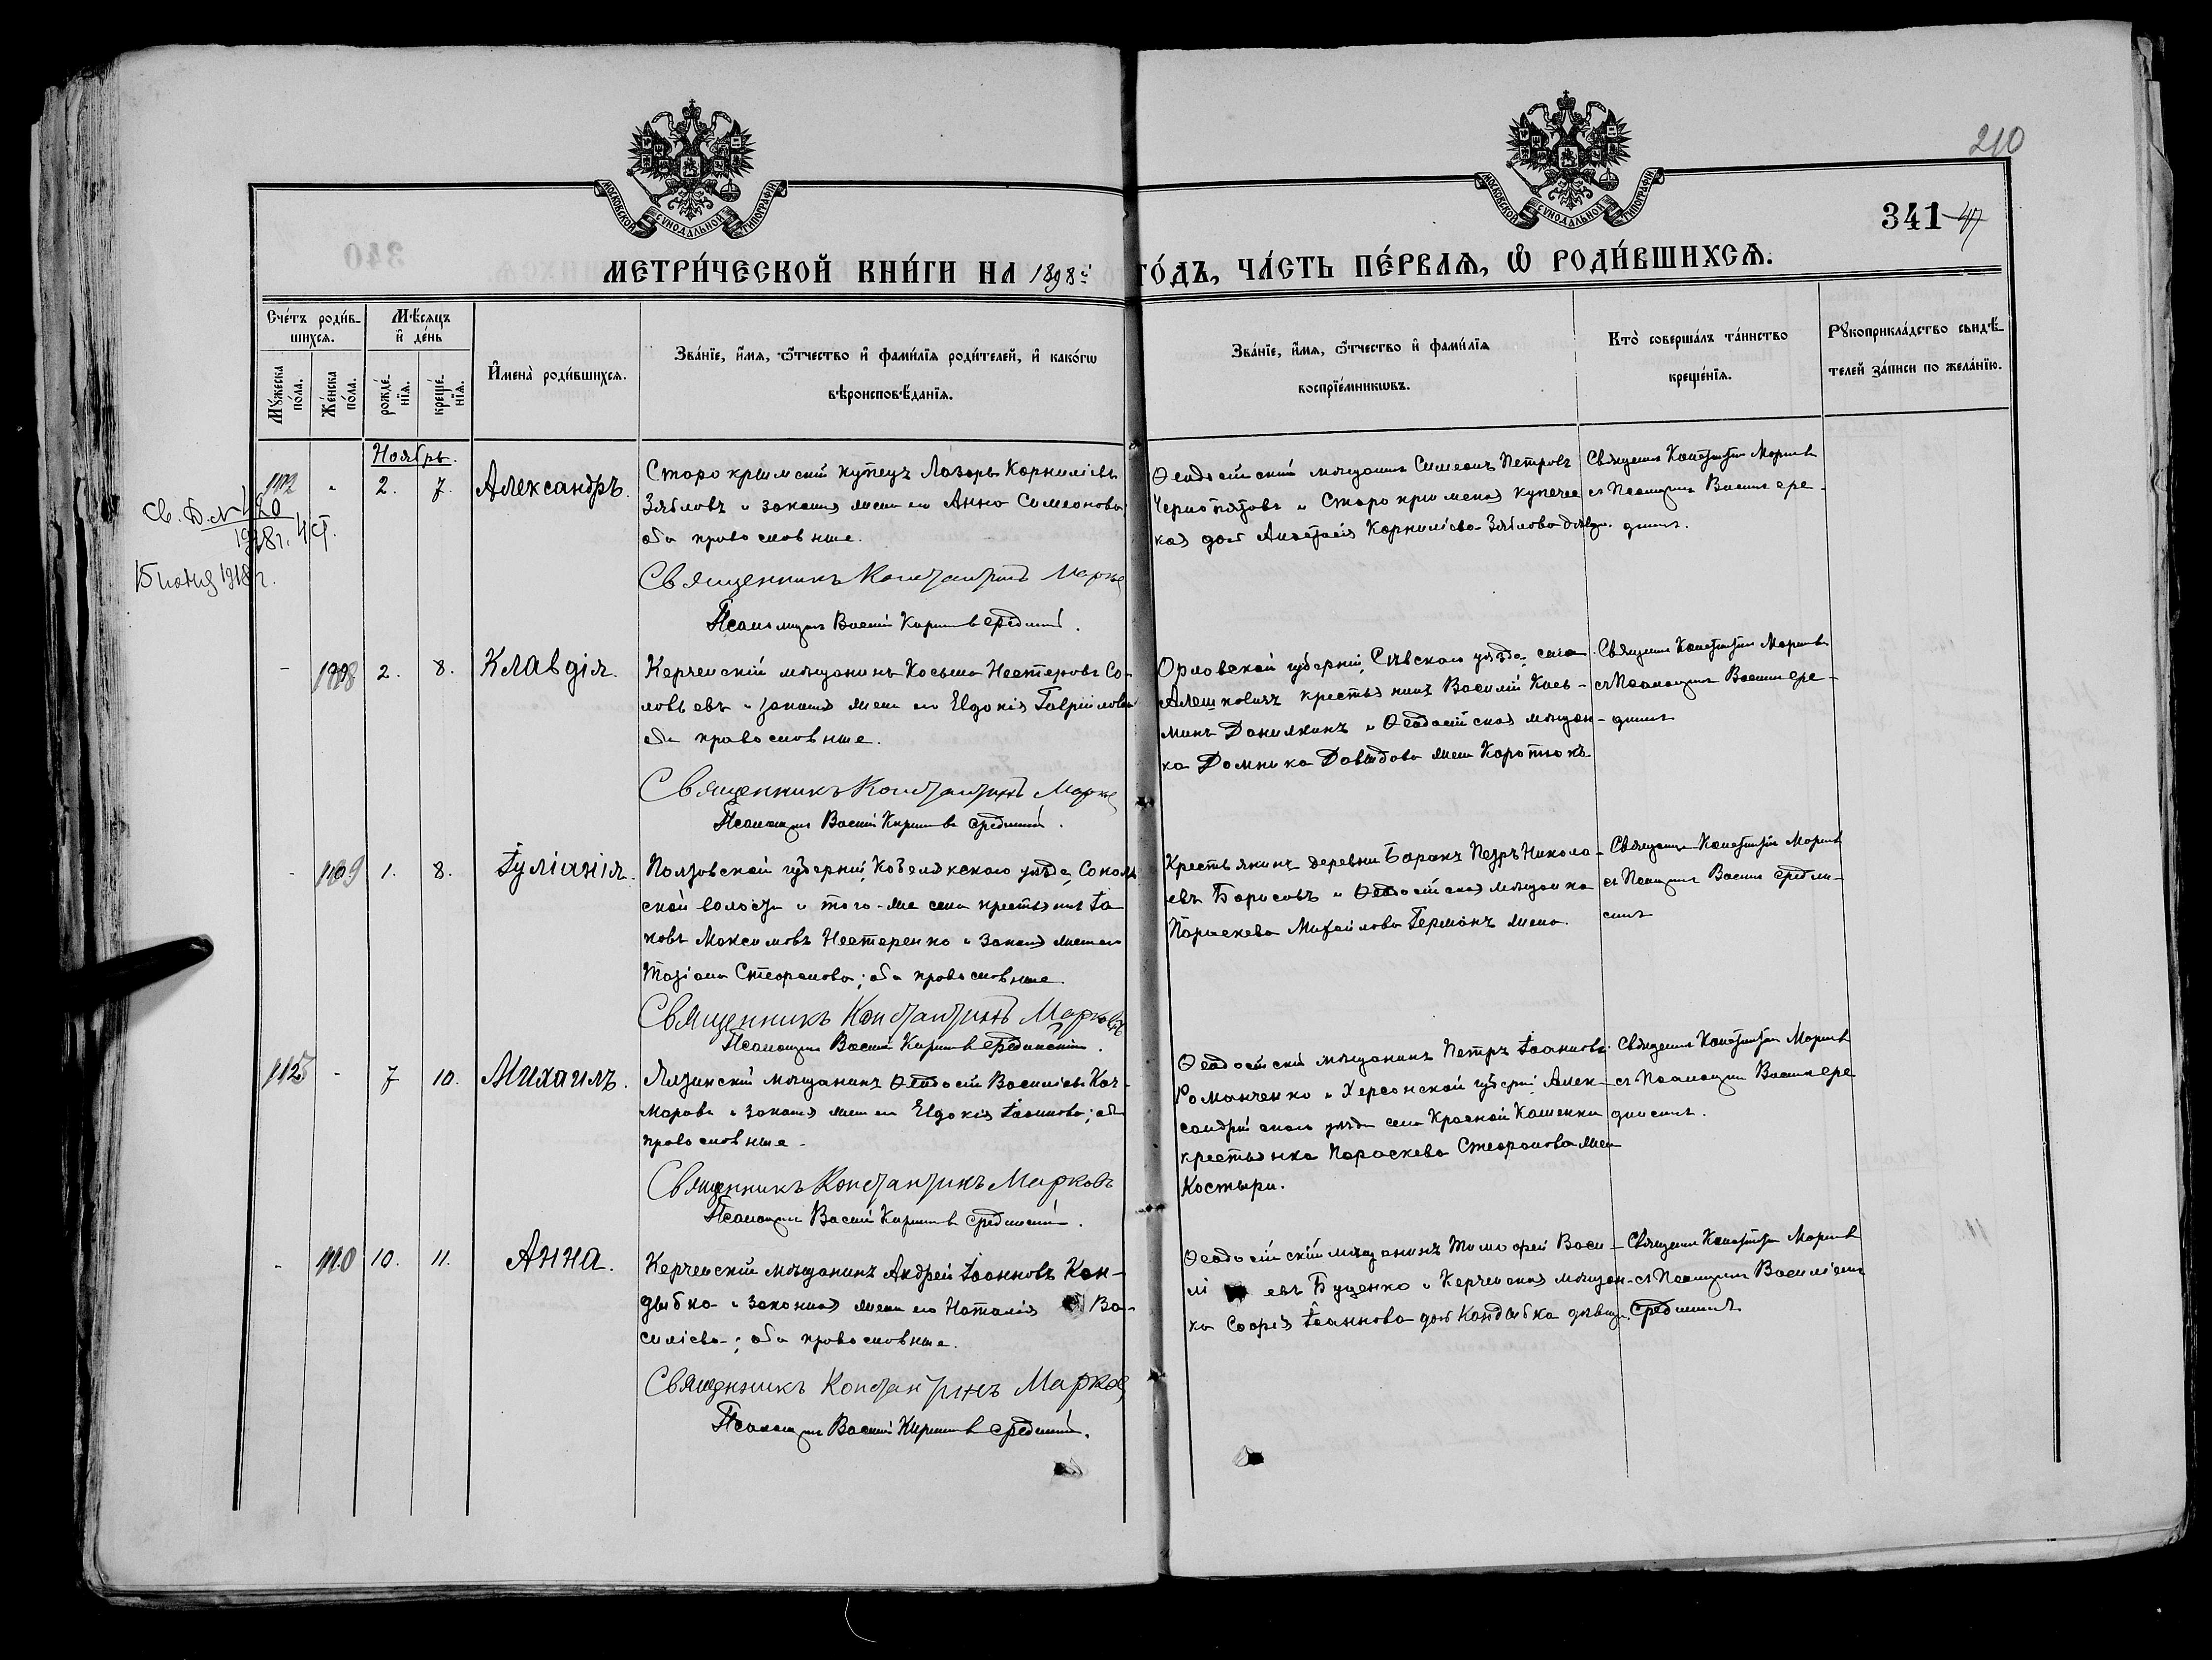 210
341
МОСКОВСКОЙ СѴНОДАЛЬНОЙ ТИПОГРАФІИ
МОСКОВСКОЙ СѴНОДАЛЬНОЙ ТИПОГРАФІИ
МЕТРИ́ЧЕСКОЙ КНИ́ГИ НА 1898й ГО́ДЪ, ЧА́СТЬ ПЕ́РВАѦ, Ѡ РОДИ́ВШИХСѦ.
Сче́тъ роди́в-
шихсѧ.
Мѣ́сѧцъ
и҆ де́нь
Мꙋ́жеска
по́ла.
Же́нска
по́ла.
рожде́-
нїѧ.
креще́-
нїѧ.
И҆мена̀ роди́вшихсѧ.
Зва́нїе, и҆́мѧ, ѻ҆́тчество и҆ фами́лїѧ роди́телей, и҆ како́гѡ
вѣроисповѣ́данїѧ.
Зва́нїе, и҆́мѧ, ѻ҆́тчество и҆ фами́лїѧ
воспрїе́мникѡвъ.
Кто̀ соверша́лъ та́инство
креще́нїѧ.
Рꙋкоприкла́дство свидѣ́-
телей за́писи по жела́нїю.
Ноябрь.
2. 7. Александръ.
Старокрымскій купецъ Лазарь Корниліевъ
Зябловъ и законная жена его Анна Симеонова,
оба православные.
Священникъ Константинъ Марковъ
Псаломщикъ Василій Средин
Ѳеодосійскій мѣщанинъ Симеонъ Петровъ
Чернопятовъ и Старокрымская купечес
кая дочь Анастасія Корниліева Зяблова дѣвица.
Священникъ Константинъ Марковъ
съ Псаломщикомъ Васил Сре-
15 1918 г.
2. 8. Клавдія.
Керченскій мѣщанинъ Косьма Нестеровъ Со-
ловьевъ и законная жена его Евдокія Гавріилова
оба православные.
Священникъ Константинъ Марковъ
Псаломщикъ Василій Средин
Орловской губерніи, Сѣвскаго уѣзда, села
Алешковичъ крестьянинъ Василій Косьминъ
Данилкинъ и Ѳеодосійская мѣщан-
ка Домника Давидова жена Коротюкъ
Священникъ Константинъ Марковъ
съ Псаломщикомъ Васил Сре-
1. 8. Іуліанія.
Полтавской губерніи, Кобелякскаго уѣзда, Соколь
ской волости и того-же села крестьянинъ Іа
ковъ Максимовъ Нестеренко и законная жена его
Татіана Стефанова; оба православные
Священникъ Константинъ Марковъ
Псаломщикъ Василій Срединскій.
Крестьянинъ деревни Баранъ Петръ Никола-
евъ Борисовъ и Ѳеодосійская мѣщанка
Параскева Михайлова Германъ жена.
Священникъ Константинъ Марковъ
съ Псаломщикомъ Васил Средин-
7 10. Михаилъ.
мѣщанинъ Ѳеодосій Василіевъ Ком-
маровъ и законная жена его Евдокія Іоаннова; оба
православные.
Священникъ Константинъ Марковъ
Псаломщикъ Василій Срединскій.
Ѳеодосійскій мѣщанинъ Петръ Іоанновъ
Романченко и Херсонской губерніи Алек-
сандрійскаго уѣзда села Красной Каменки
крестьянка Параскева Стефанова жена
Костыри.
Священникъ Константинъ Марковъ
съ Псаломщикомъ Васил Сре
110 10. 11. Анна.
Керченскій мѣщанинъ Андрей Іоанновъ Кан-
дыбка и законная жена его Наталія Ва-
силіева; оба православные.
Священникъ Константинъ Марковъ
Псаломщикъ Василій Средин
Ѳеодосійскій мѣщанинъ Тимофей Васи-
лі евъ Буценко и Керченская мѣщан-
ка Софія Іоаннова дочь Кандыбка дѣвица.
Священникъ Константинъ Марковъ
съ Псаломщикомъ Василіемъ